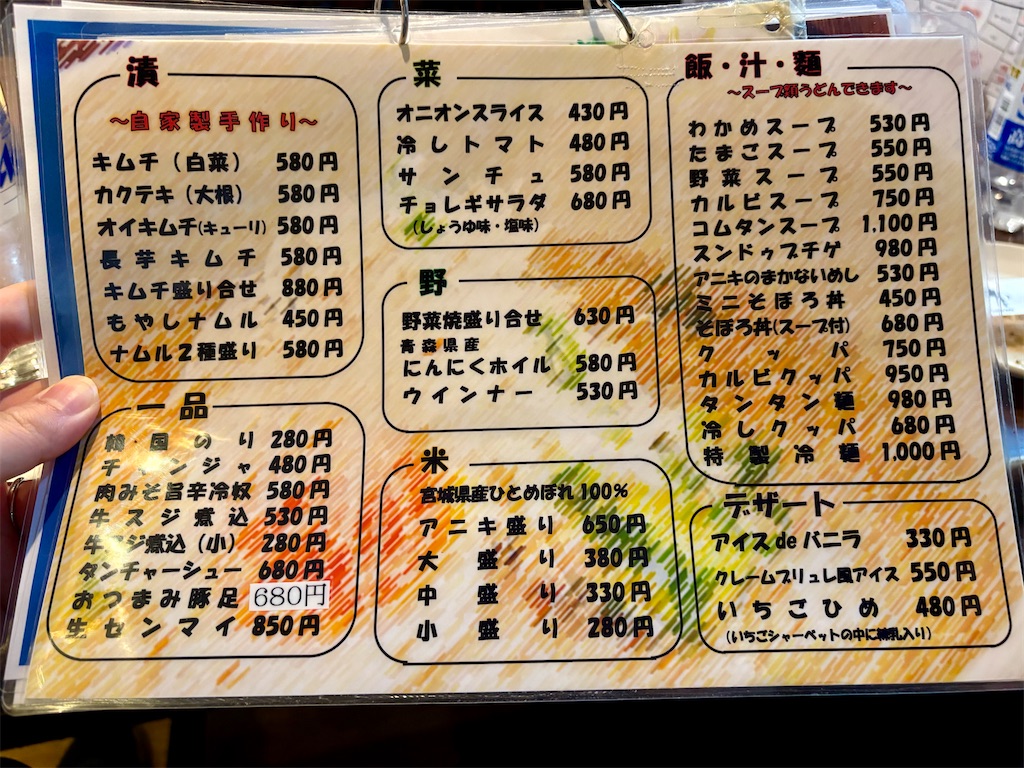 漬
～自家製手作り～
キムチ（白菜） 580円
カクテキ（大根） 580円
オイキムチ(キューリ) 580円
長芋キムチ 580円
キムチ盛り合せ 880円
もやしナムル 450円
ナムル2種盛り 580円
一品
韓・国のり 280円
チャンジャ 480円
肉みそ旨辛冷奴 580円
牛スジ煮込 530円
牛スジ煮込（小） 280円
タンチャーシュー 680円
おつまみ豚足 680円
生センマイ 850円
菜
オニオンスライス 430円
冷しトマト 480円
サンチュ 580円
チョレギサラダ 680円
（しょうゆ味・塩味）
野
野菜焼盛り合せ 630円
青森県産
にんにくホイル 580円
ウインナー 530円
米
宮城県産ひとめぼれ100%
アニキ盛り 650円
大盛り 380円
中盛り 330円
小盛り 280円
飯・汁・麺
～スープ類うどんできます～
わかめスープ 530円
たまごスープ 550円
野菜スープ 550円
カルビスープ 750円
コムタンスープ 1,100円
スンドゥブチゲ 980円
アニキのまかないめし 530円
ミニそぼろ丼 450円
そぼろ丼(スープ付) 680円
クッパ 750円
カルビクッパ 950円
タンタン麺 980円
冷しクッパ 680円
特製冷麺 1,000円
デザート
アイスdeバニラ 330円
クレームブリュレ風アイス 550円
いちごひめ 480円
（いちごシャーベットの中に練乳入り）